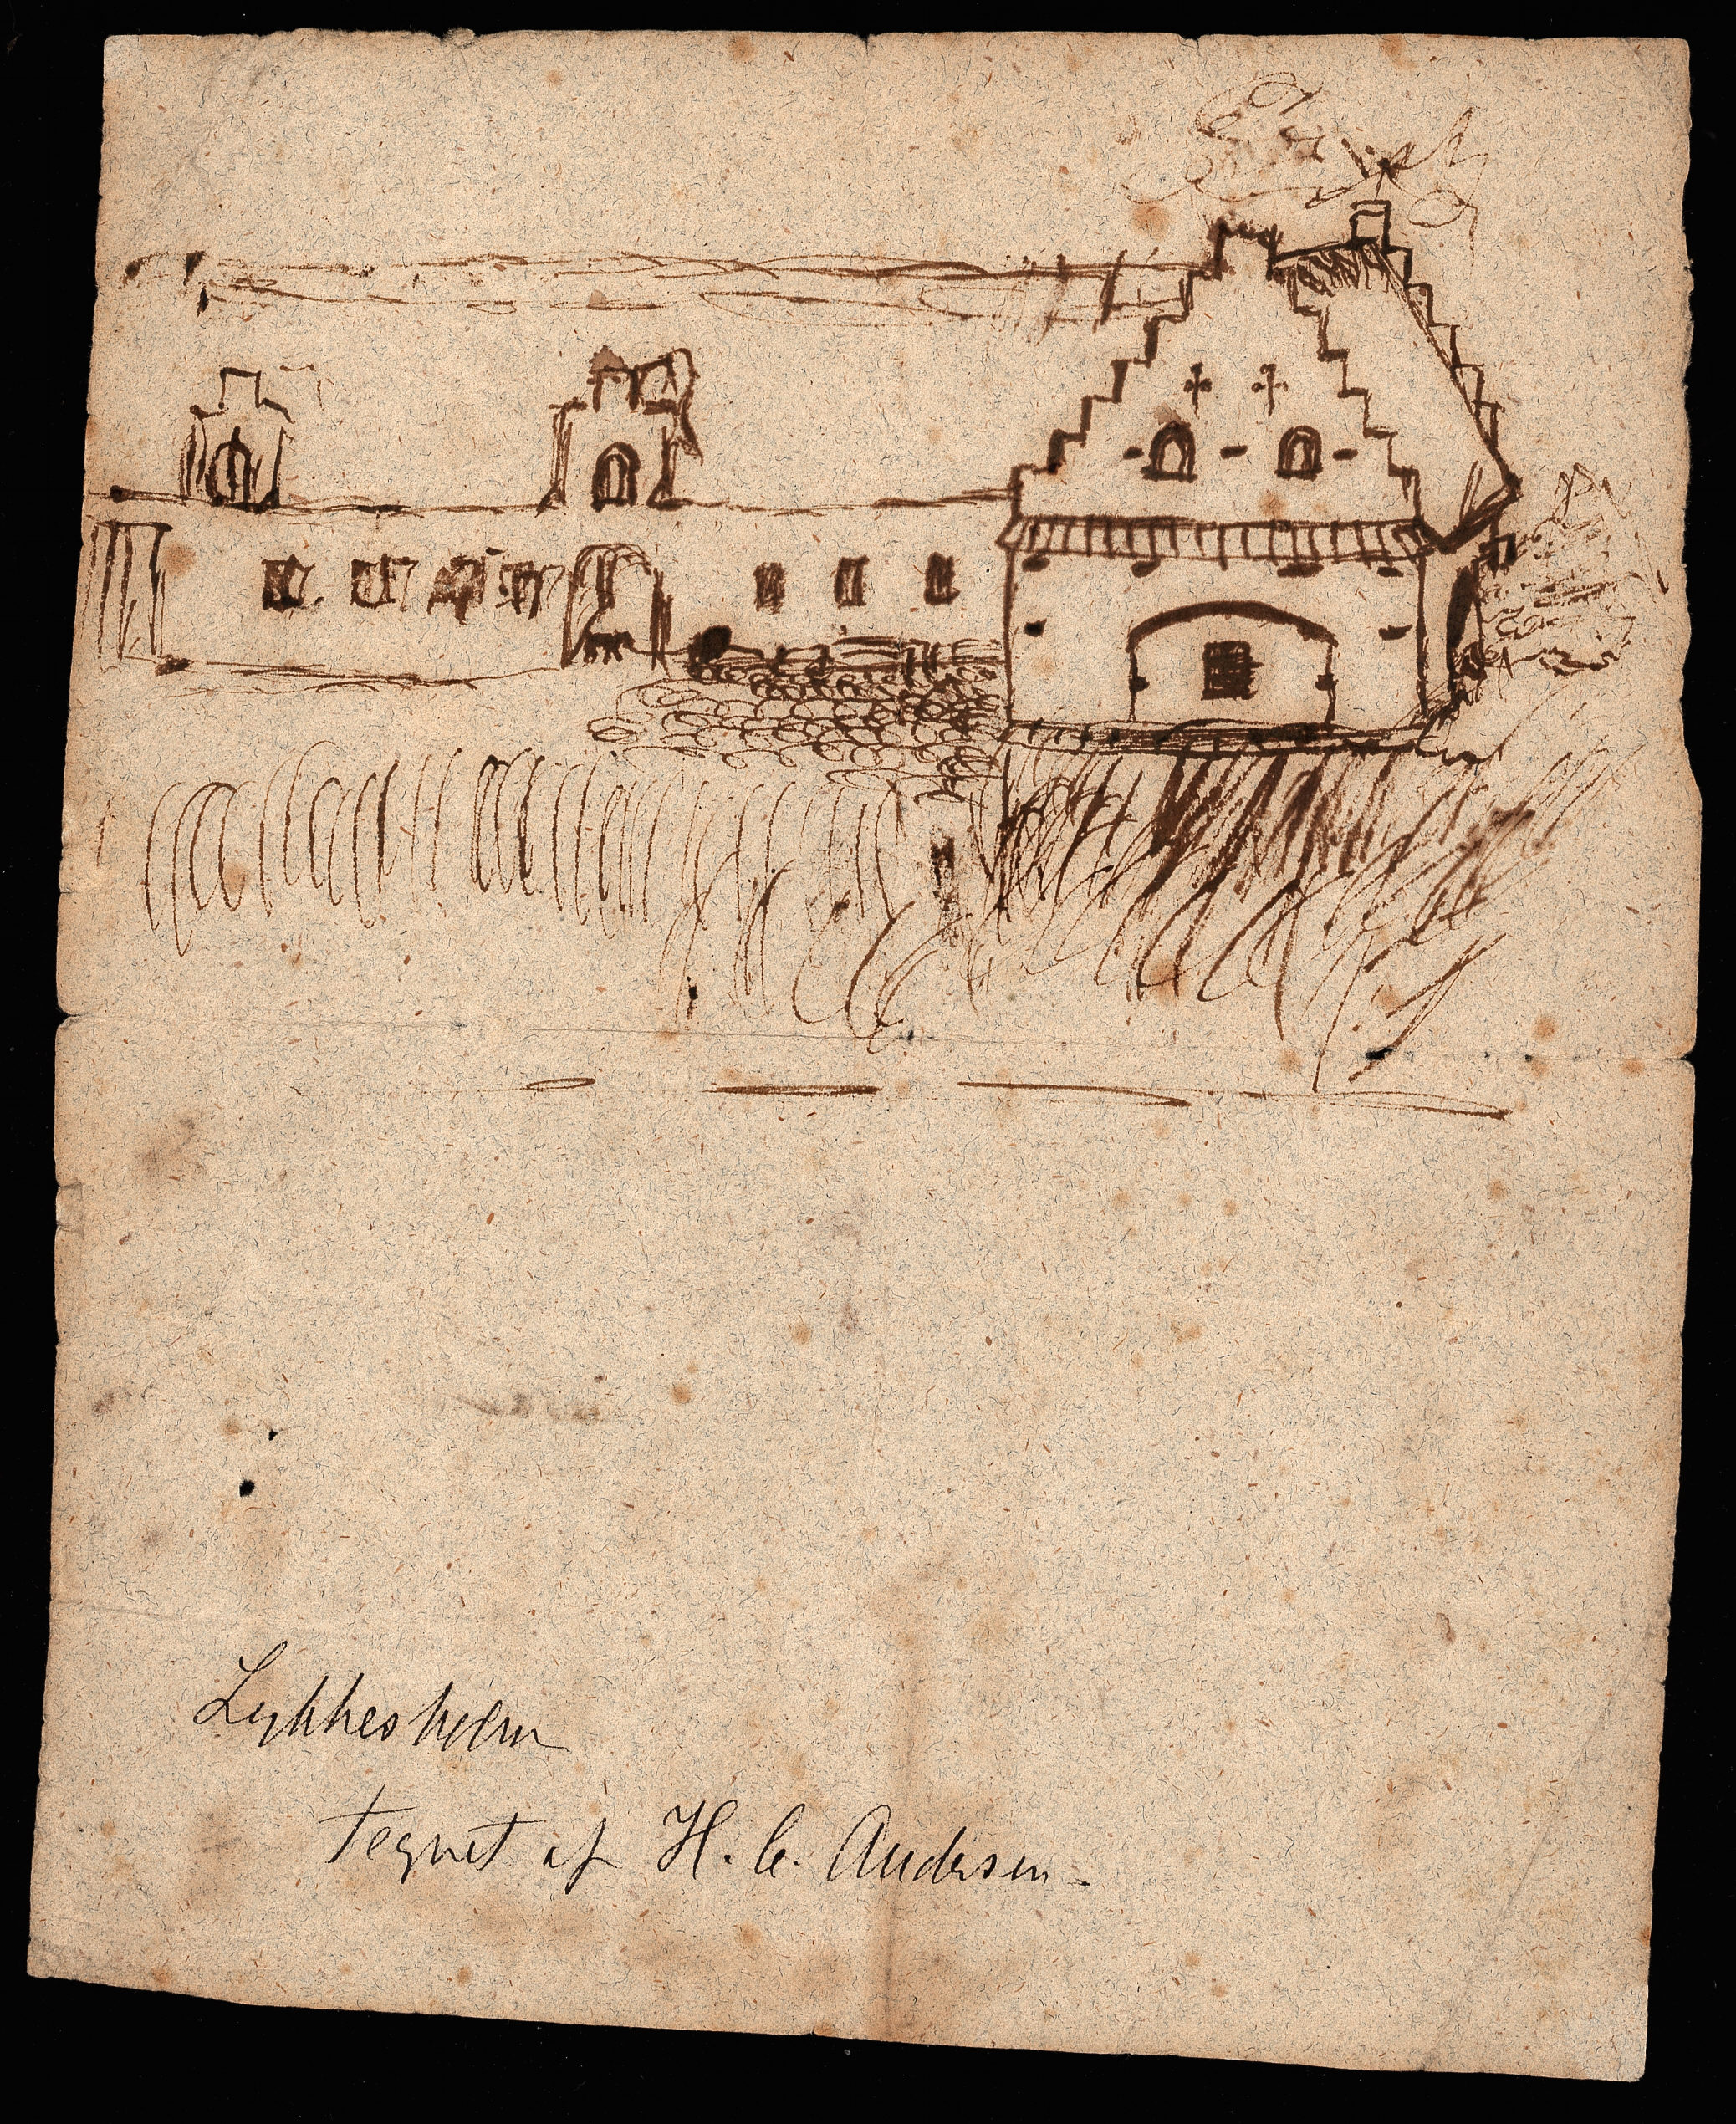 Lykkesholm
tegnet af H. C. Andersen.